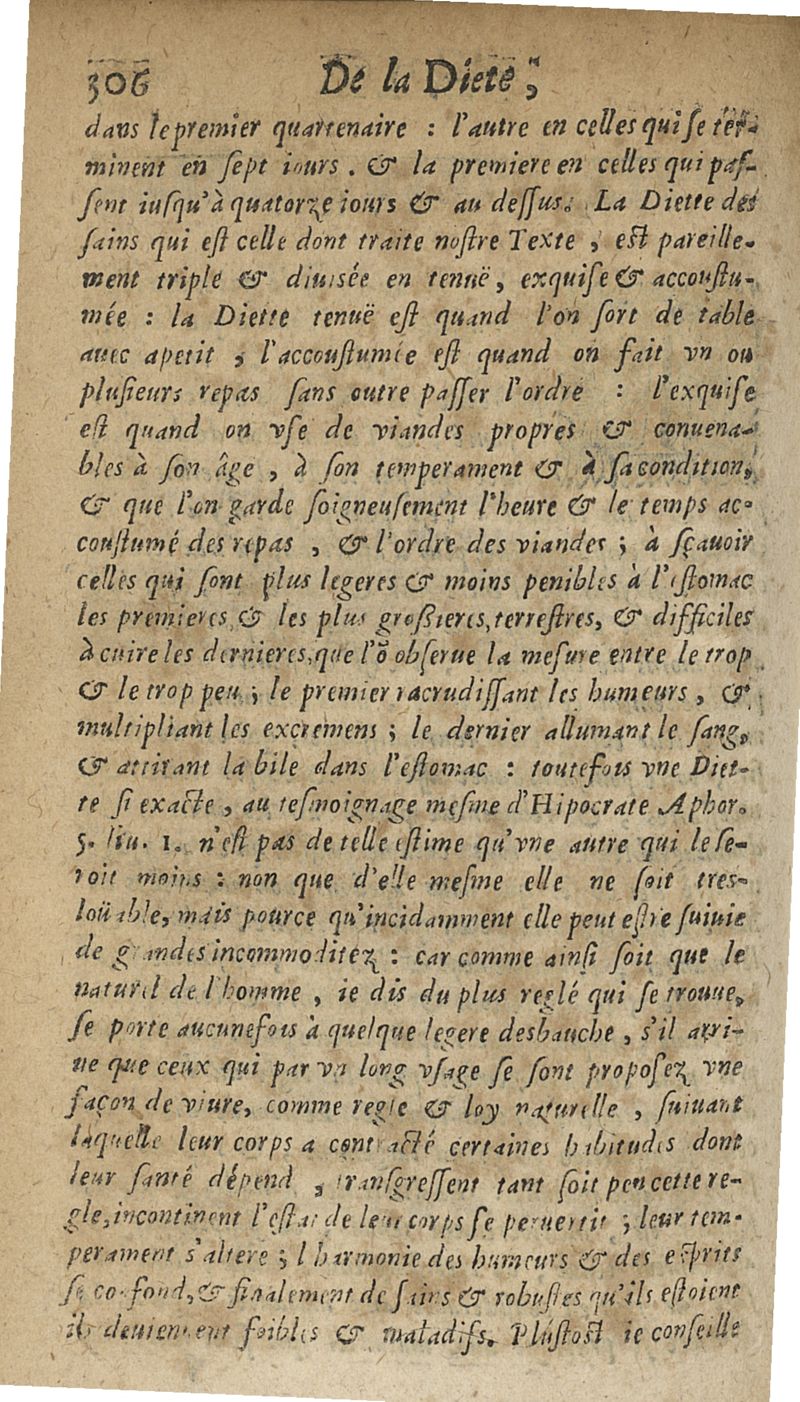 306 De la Diete,
dans le premier quartenaire : l'autre en celles qui se ter-
minent en sept iours. & la premiere en celles qui paſ-
ſent iuſqu'à quatorze iours & au deſſus. La Diette des
ſains qui eſt celle dont traite noſtre Texte, eſt pareille-
ment triple & diuisée en tenuë, exquiſe & accouſtu-
mée : la Diette tenuë eſt quand l'on ſort de table
auec apetit, l'accouſtumée eſt quand on fait vn ou
pluſieurs repas ſans outre paſſer l'ordre : l'exquiſe
eſt quand on vſe de viandes propres & conuena-
bles à ſon âge, à ſon temperament & à ſa condition,
& que l'on garde ſoigneuſement l'heure & le temps ac-
couſtumé des repas, & l'ordre des viandes ; à ſçauoir
celles qui ſont plus legeres & moins penibles à l'eſtomac
les premieres & les plus groſſieres, terreſtres, & difficiles
à cuire les dernieres, que l'õ obſerue la meſure entre le trop
& le trop peu ; le premier racrudiſſant les humeurs, &
multipliant les excremens ; le dernier allumant le ſang,
& attirant la bile dans l'eſtomac : toutefois vne Diet-
te ſi exacte, au teſmoignage meſme d'Hipocrate Aphor.
5. liu. 1. n'eſt pas de telle eſtime qu'vne autre qui le ſe-
roit moins : non que d'elle meſme elle ne ſoit tres-
loüable, mais pource qu'incidamment elle peut eſtre ſuiuie
de grandes incommoditez : car comme ainſi ſoit que le
naturel de l'homme, ie dis du plus reglé qui ſe trouue,
ſe porte aucunefois à quelque legere desbauche, s'il arri-
ue que ceux qui par vn long vſage ſe ſont propoſez vne
façon de viure, comme regle & loy naturelle, ſuiuant
laquelle leur corps a contracté certaines habitudes dont
leur ſanté dépend, tranſgreſſent tant ſoit peu cette re-
gle, incontinent l'eſtat de leur corps ſe peruertit ; leur tem-
perament s'altere ; l'harmonie des humeurs & des eſprits
ſe confond, & finalement de ſains & robuſtes qu'ils eſtoient
ils deuiennent foibles & maladifs. Pluſtoſt ie conſeille